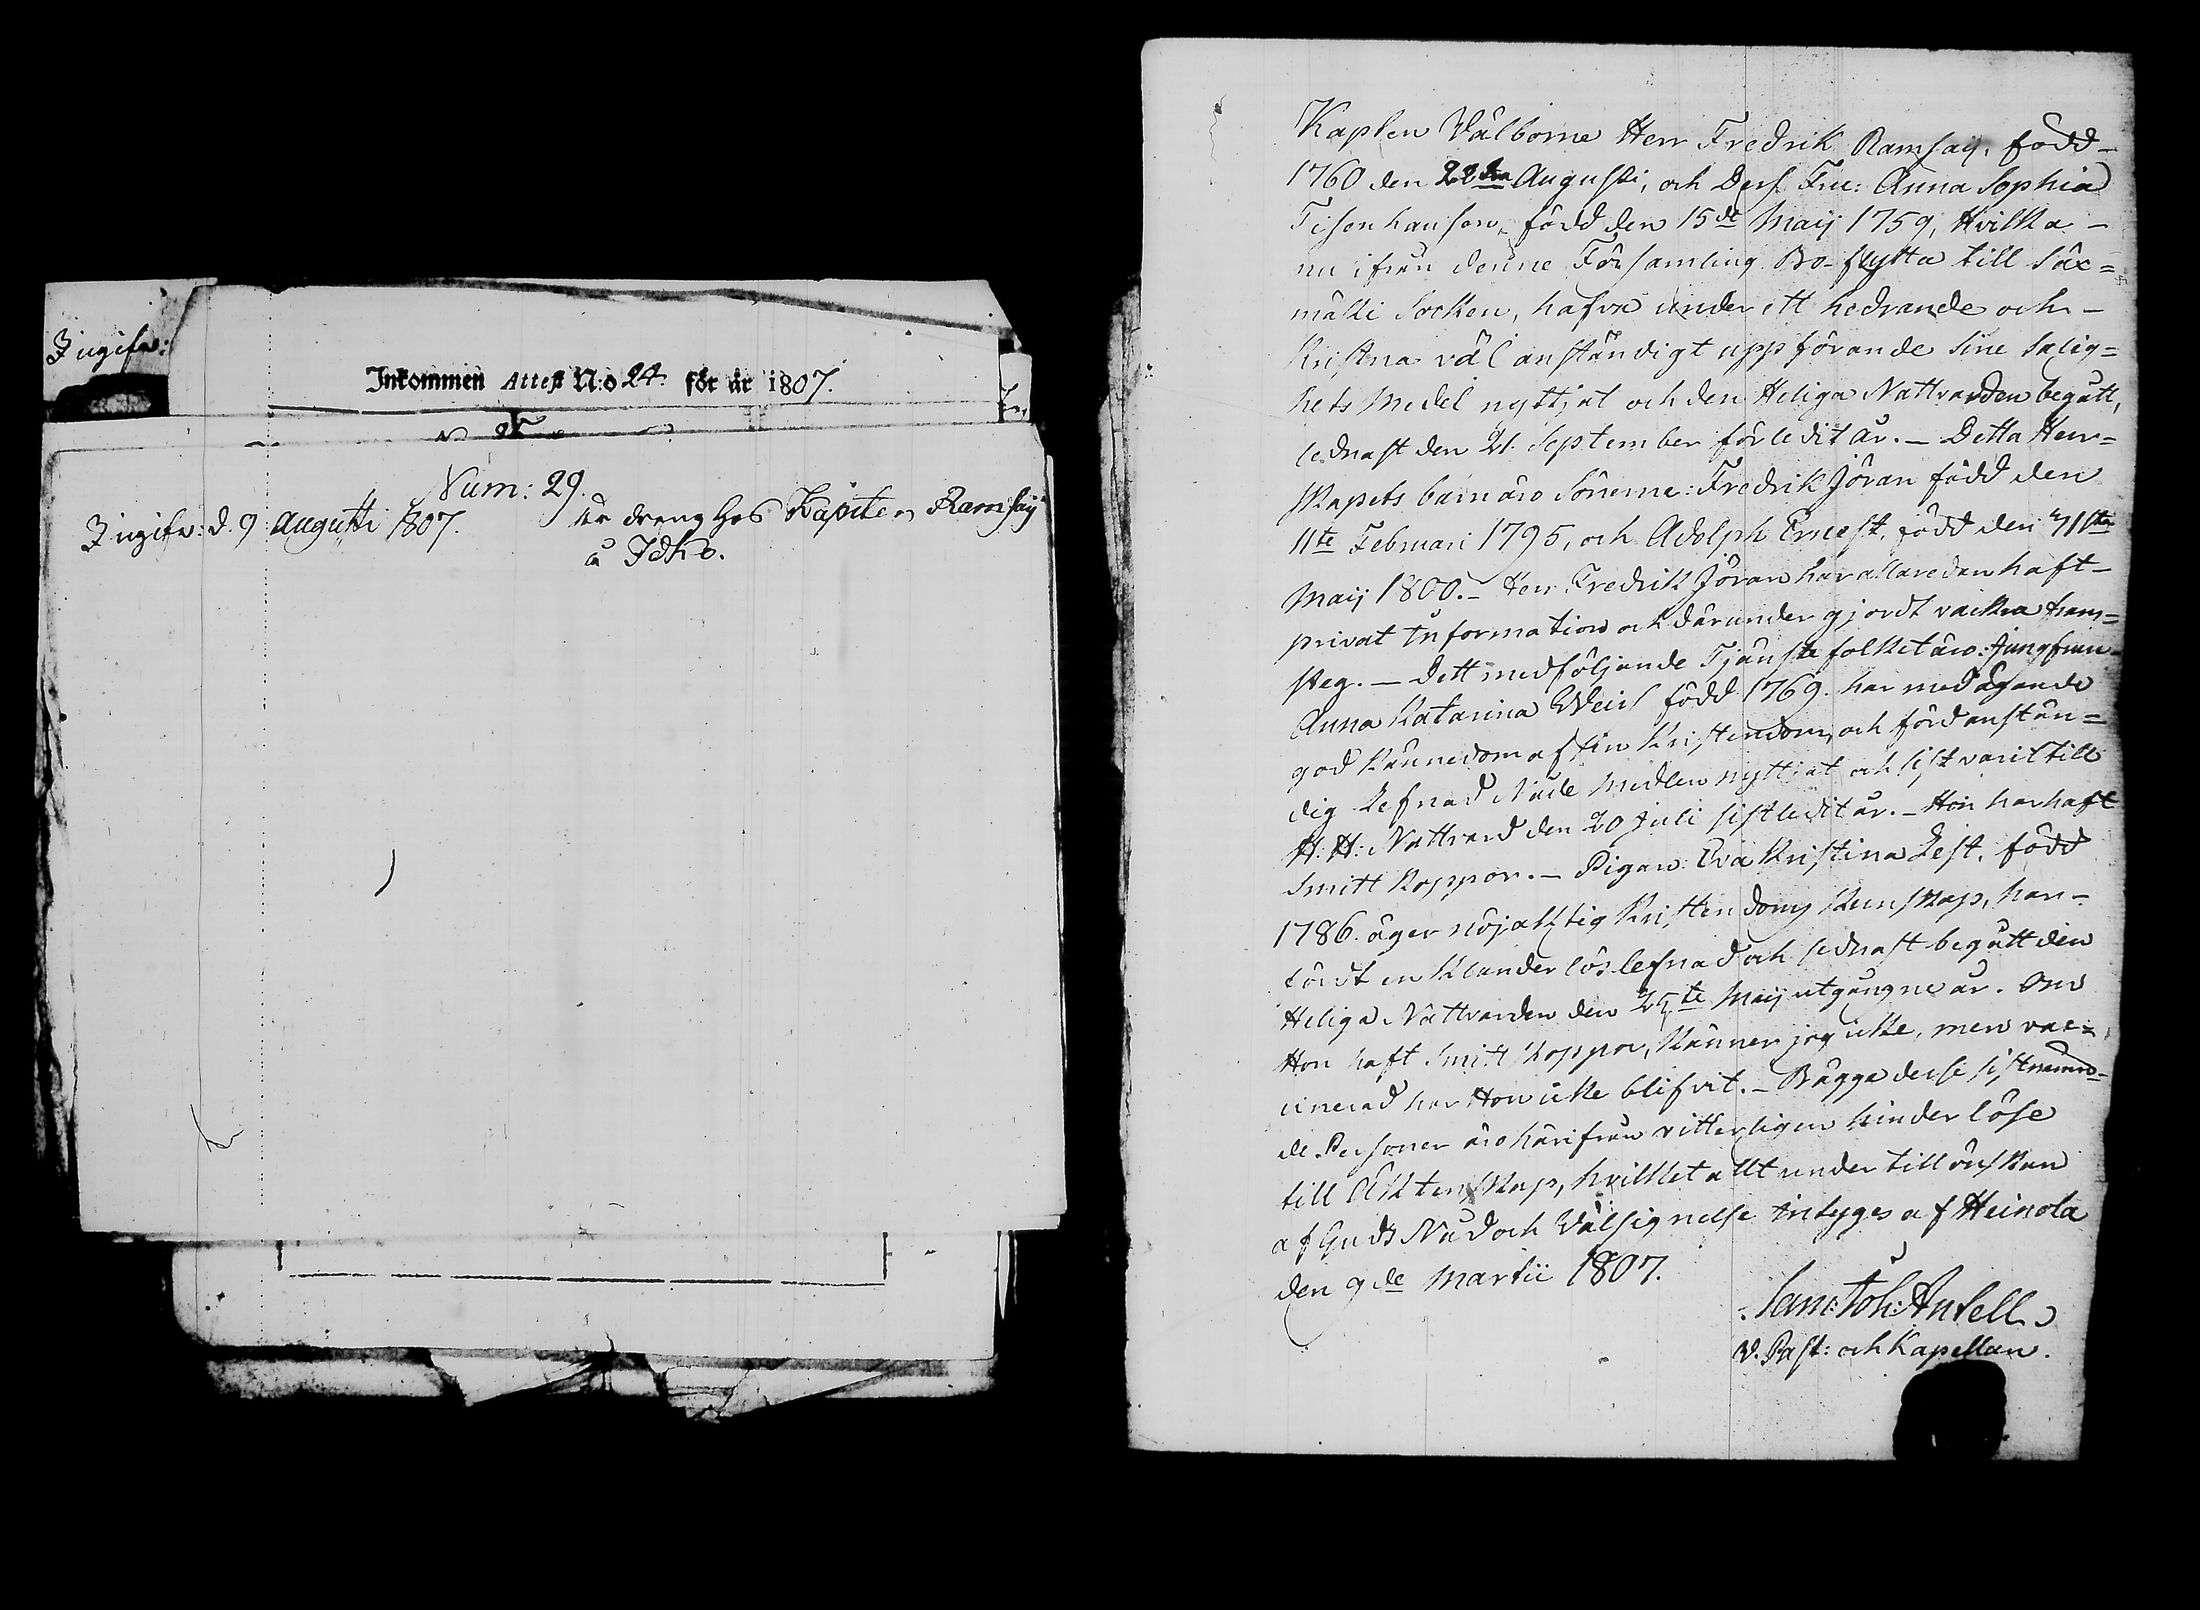 Ingifv:
Inkommen Attest N:o 24. för år 1807.
Num: 29.
Ingifv: d. 9 Augusti 1807.
är dreng hos Kapiten Ramsay
å Idho.
Kapten Välborne Herr Fredrik Ramsay, född
1760 den 22dra Augusti, och Dess Fru: Anna Sophia
Tisenhausen, född den 15de Maij 1759, Hvilka
nu ifrån denne Församling Bo-flytta till Säx=
mäki Socken, hafva under ett hedrande och
Kristna väl anständigt uppförande sine Salig=
hets Medel nyttjat och den Heliga Nattvarden begått,
sednast den 21 September förledit år. — Detta Herr=
skapets barn äro Sönerne: Fredrik Jöran född den
11te Februari 1795, och Adolph Ernest, född den 31sta
Maij 1800. — Herr Fredrik Jöran har allaredan haft
privat Information och därunder gjordt vackra fram=
steg. — Dett medföljande Tjänste folket äro: Jungfrun
Anna Katarina Weirs född 1769. har med ägande
god Kännedom af sin Kristendom, och förd anstän=
dig Lefnad Nåde Medlen nyttjat och sist varit till
H. H: Nattvard den 20 Juli sistledit år. — Hon har haft
Smitt Koppor. — Pigan: Eva Kristina Lest, född
1786. äger nöjaktig Kristendoms Kunskap, har
fördt en Klanderlös lefnad och sednast begått den
Heliga Nattvarden den 25te Maij utgångne år. Om
Hon haft Smitt koppor, känner jag icke, men vac=
cinerad har Hon icke blifvit. — Bägge desse sistnämn=
de Personer äro härifrån vitterligen hinder löse
till Äktenskap, hvilket allt under tillönskan
af Guds Nåd och Välsignelse intygas af Heinola
den 9de Martii 1807.
Sam: Joh: Antell
V. Past: och Kapellan.